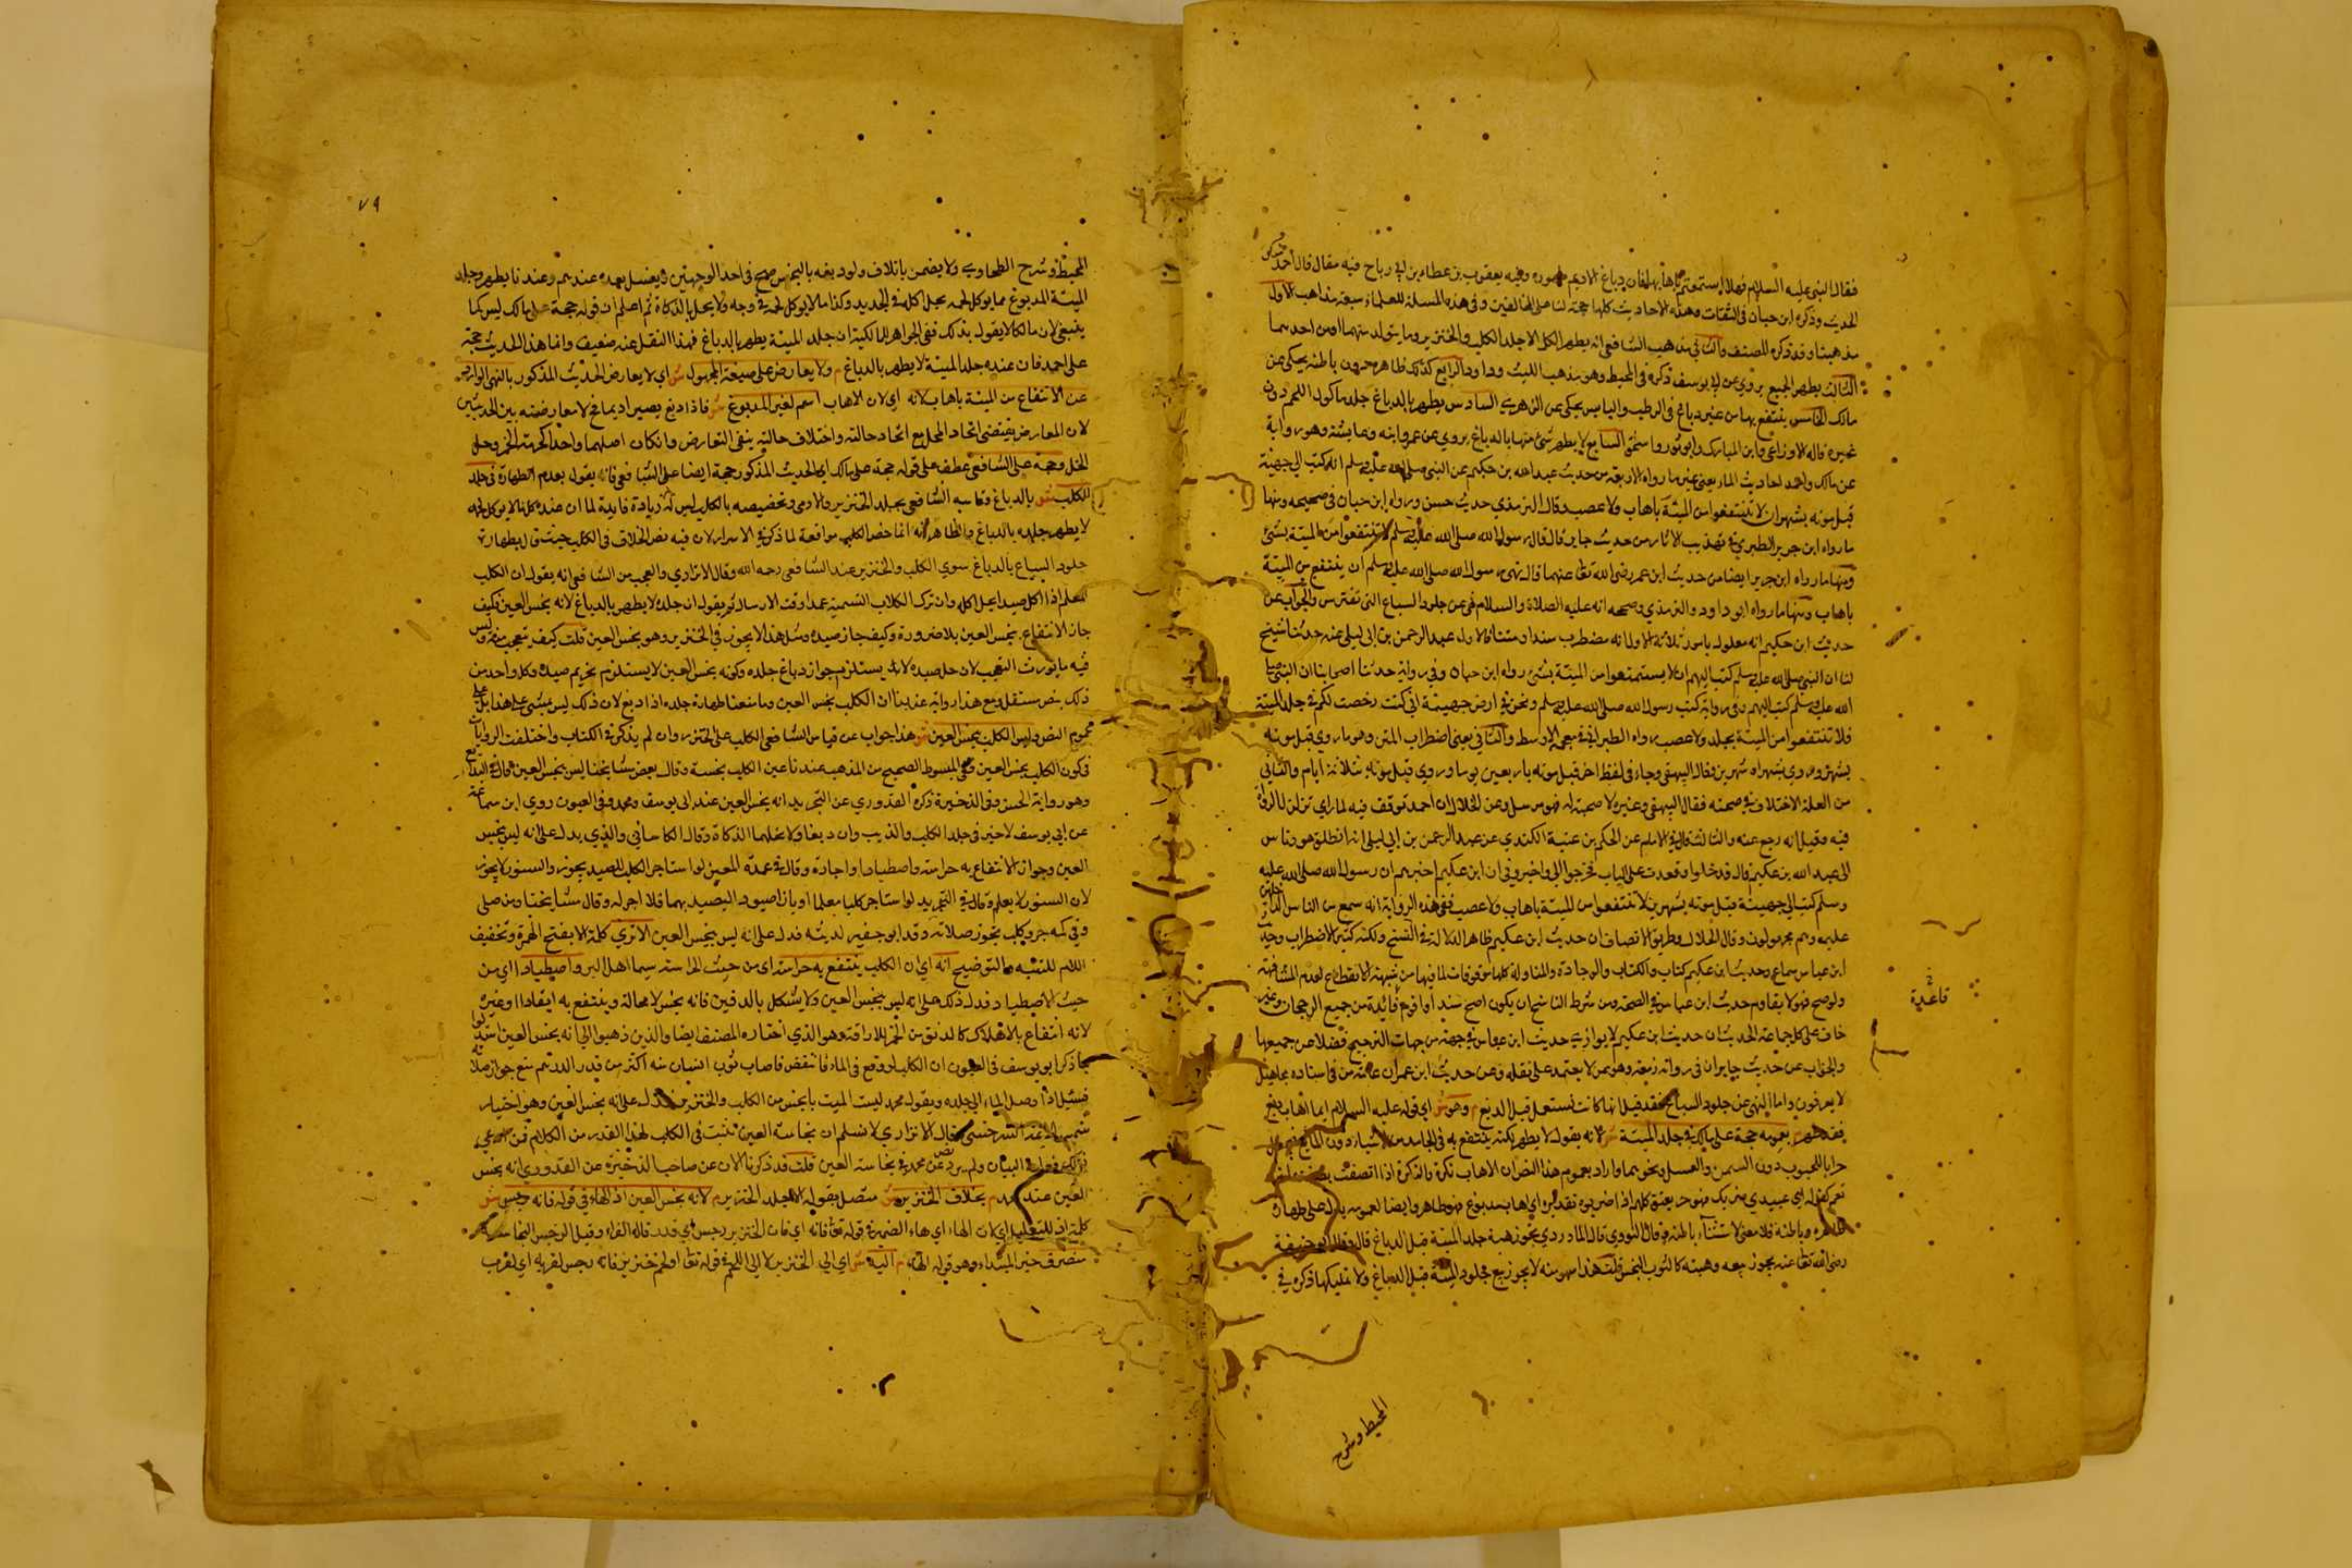 فقال النبي عليه السلام فهلا استمتعتم باهابها فان دباغ الاديم طهوره وفيه يعقوب بن عطاء بن ابي رباح فيه مقال قال احمد منكر
الحديث وذكره ابن حبان في الثقات وهذه الاحاديث كلها حجة لنا على المخالفين وفي هذه المسئلة للعلماء سبعة مذاهب الاول
مذهبنا وقد ذكره المصنف والثاني مذهب الشافعي انه يطهر الكل الا جلد الكلب والخنزير وما يتولد منهما او من احدهما
الثالث يطهر الجميع يروي عن ابي يوسف ذكره في المحيط وهو مذهب الليث وداود الرابع كذلك ظاهره دون باطنه يحكى عن
مالك الخامس ينتفع بها من غير دباغ في الرطب واليابس يحكى عن الزهري السادس يطهر بالدباغ جلد ماكول اللحم دون
غيره قاله الاوزاعي وابن المبارك وابو ثور واسحق السابع لا يطهر شئ منها بالدباغ يروي عن عمر وابنه وعايشة وهو رواية
عن مالك واحمد احاديث الماء يعني عنها رواه الاربعة من حديث عبد الله بن حكيم عن النبي صلى الله عليه وسلم انه كتب الي جهينة
قبل موته بشهر ان لا تنتفعوا من الميتة باهاب ولا عصب قال الترمذي حديث حسن ورواه ابن حبان في صحيحه ومنها
ما رواه ابن جرير الطبري في تهذيب الاثار من حديث جابر قال قال رسول الله صلى الله عليه وسلم لا تنتفعوا من الميتة بشئ
ومنها ما رواه ابن جرير ايضا من حديث ابن عمر رضي الله تعا عنهما قال نهى رسول الله صلى الله عليه وسلم ان ينتفع من الميتة
باهاب ومنها ما رواه ابو داود والترمذي وصححه انه عليه الصلاة والسلام نهى عن جلود السباع التي تفترس والجواب عن
حديث ابن حكيم انه معلول بامور ثلاثة الاول انه مضطرب سندا ومتنا فالاول عبد الرحمن بن ابي ليلى عنه حدثنا شيخ
لنا ان النبي صلى الله عليه وسلم كتب اليهم ان لا يستمتعوا من الميتة بشئ رواه ابن حبان وفي رواية حدثنا اصحابنا ان النبي صلى
الله عليه وسلم كتب اليهم وفي رواية كتب رسول الله صلى الله عليه وسلم ونحن في ارض جهينة اني كنت رخصت لكم في جلد الميتة
فلا تنتفعوا من الميتة بجلد ولا عصب رواه الطبراني في معجمه الاوسط والثاني يعني اضطراب المتن وهو ما روي قبل موته
بشهر وروي بشهر او شهرين فقال البيهقي وجاء في لفظ اخر قبل موته باربعين يوما وروي قبل موته بثلاثة ايام والثاني
من العلة الاختلاف في صحبته فقال البيهقي وغيره لا صحبة له فهو مرسل وعن الخلال ان احمد توقف فيه لما راى تزلزل الرواة
فيه وقيل انه رجع عنه والثالث قال في الامام عن الحكم بن عتيبة الكندي عن عبد الرحمن بن ابي ليلى انه انطلق هو وناس
الى عبد الله بن عكيم قال قد خلوا وقعدت على الباب فخرجوا الي واخبروني ان ابن عكيم اخبرهم ان رسول الله صلى الله عليه
وسلم كتب الي جهينة قبل موته بشهرين لا تنتفعوا من الميتة باهاب ولا عصب ففي هذه الرواية انه سمع من الناس الداخلين
عليه وهم مجهولون وقال الخلال وطريق الانصاف ان حديث ابن عكيم ظاهر الدلالة في النسخ ولكنه كثير الاضطراب وحديث
ابن عباس سماع وحديث ابن عكيم كتاب والكتاب والوجادة والمناولة كلها موقوفات لما فيها من شبهة الانقطاع لعدم المشافهة
ولو صح فهو لا يقاوم حديث ابن عباس في الصحة ومن شرط الناسخ ان يكون اصح سندا واقوم قائدة من جميع الرجحان وغير
خاف على كل جماعة الحديث ان حديث ابن عكيم لا يوازي حديث ابن عباس في جهة من جهات الترجيح فضلا عن جميعها
والجواب عن حديث جابر ان في رواته زمعة وهو ممن لا يعتمد على نقله وعن حديث ابن عمر ان عامة من في اسناده مجاهيل
لا يعرفون واما النهي عن جلود السباع فقد قيل انها كانت تستعمل قبل الدبغ م وهو ش اي قوله عليه السلام ايما اهاب دبغ
فقد طهر م بعمومه حجة على مالك في جلد الميتة ش لانه يقول لا يطهر لكنه ينتفع به في الجامد من الاشياء دون المايع
جرابا للحبوب دون السمن والعسل ونحوهما واراد بعموم هذا النص ان الاهاب نكرة والنكرة اذا اتصفت بصفة
تعم كقوله اي عبيدي ضربك فهو حر يعتق كلهم اذا ضربوه تقديره اي اهاب مدبوغ فهو طاهر وايضا لعمومه يدل على طهارة
ظاهره وباطنه فلا معنى لاستثناء باطنه وقال النووي قال الماوردي يجوز هبة جلد الميتة قبل الدباغ قال وقال ابو حنيفة
رضي الله تعا عنه يجوز بيعه وهبته كالثوب النجس قلت هذا سهو منه لا يجوز بيع جلود الميتة قبل الدباغ ولا تمليكها ذكره في
قاعدة
المحيط وشرح
٧٩
المحيط وشرح الطحاوي ولا يضمن باتلاف ولو دبغه بالنجس صح في احد الوجهين ويغسل بعده عندهم وعندنا يطهر وجلد
الميتة المدبوغ مما يوكل لحمه يحل اكله في الجديد وكذا ما لا يوكل لحمه في وجه ولا يحل بالذكاة ثم اعلم ان قوله حجة على مالك ليس كما
ينبغي لان مالكا لا يقول بذلك ففي الجواهر للمالكية ان جلد الميتة يطهر بالدباغ فهذا النقل عنه ضعيف وانما هذا الحديث حجة
على احمد فان عنده جلد الميتة لا يطهر بالدباغ م ولا يعارض على صيغة المجهول ش اي لا يعارض الحديث المذكور بالنهي الوارد
عن الانتفاع من الميتة باهاب لانه اي لان الاهاب اسم لغير المدبوغ ش فاذا دبغ يصير اديما فح لا معارضة بين الحديثين
لان المعارض يقتضي اتحاد المحل مع اتحاد حالته واختلاف حالتيه ينفي التعارض وان كان اصلهما واحدا كحرمة الخمر وحل
الخل وحجة على الشافعي عطف على قوله حجة على مالك اي الحديث المذكور حجة ايضا على الشافعي فانه يقول بعدم الطهارة في جلد
الكلب ش بالدباغ وقاسه الشافعي بجلد الخنزير والادمي وتخصيصه بالكلب ليس له زيادة فايدة لما ان عنده كل ما لا يوكل لحمه
لا يطهر جلده بالدباغ والظاهر انه انما خص الكلب موافقة لما ذكر في الاسرار لان فيه نص الخلاف في الكلب حيث قال بطهارة
جلود السباع بالدباغ سوي الكلب والخنزير عند الشافعي رحمه الله وقال الاتراري والعجب من الشافعي انه يقول ان الكلب
المعلم اذا اكل صيدا يحل اكله وان ترك الكلاب التسمية عمدا وقت الارسال ثم يقول ان جلده لا يطهر بالدباغ لانه نجس العين فكيف
جاز الانتفاع بنجس العين بلا ضرورة وكيف جاز صيده ومثل هذا لا يجوز في الخنزير وهو نجس العين قلت كيف يتعجب منه وليس
فيه ما يورث التعجب لان حل صيده لا يستلزم جواز دباغ جلده وكونه نجس العين لا يستلزم تحريم صيده وكل واحد من
ذلك بنص مستقل ومع هذا رواية عندنا ان الكلب نجس العين وما منعنا طهارة جلده اذا دبغ لان ذلك ليس مبني على هذا بل على
عموم النص وليس الكلب بنجس العين ش هذا جواب عن قياس الشافعي الكلب على الخنزير وان لم يذكر في الكتاب واختلفت الروايات
في كون الكلب نجس العين وفي المبسوط الصحيح من المذهب عندنا عين الكلب نجسة وقال بعض مشايخنا ليس بنجس العين وقال في البدايع
وهو رواية الحسن وفي الذخيرة ذكره القدوري عن التجريد انه نجس العين عند ابي يوسف ومحمد وفي العيون روي ابن سماعة
عن ابي يوسف لا خير في جلد الكلب والذيب وان دبغا ولا تعلهما الذكاة وقال الكاساني والذي يدل على انه ليس نجس
العين وجواز الانتفاع به حراسة واصطيادا واجارة وقال في عمدة المعين لو استاجر الكلب للصيد يجوز والسنور لا يجوز
لان السنور لا يعلم وقال في التجريد لو استاجر كلبا معلما او بازا صيودا ليصيد بهما فلا اجر له وقال مشايخنا ومن صلى
وفي كمه جرو كلب يجوز صلاته وقد ابو جعفر لديثه فدل على انه ليس بنجس العين الا ترى كلمة الا بفتح الهمزة وتخفيف
اللام للتنبيه والتوضيح انه اي ان الكلب ينتفع به حراسة اي من حيث الحراسة سيما اهل البر واصطيادا اي من
حيث الاصطياد فدل ذلك على انه ليس بنجس العين ولا يشكل بالدفين فانه نجس لا محالة وينتفع به ايقادا وغيره
لانه انتفاع بالاهلاك كالدنو من الخمر للاراقة وهو الذي اختاره المصنف ايضا والذين ذهبوا الى انه نجس العين استدلوا
بما ذكر ابو يوسف في العيون ان الكلب لو وقع في الماء فانتفض فاصاب ثوب انسان منه اكثر من قدر الدرهم منع جواز صلاته
فسئل اذا وصل الماء الي جلده ويقول محمد ليست الميت بانجس من الكلب والخنزير فدل على انه نجس العين وهو اختيار
شمس الائمة السرخسي وقال الاتراري لا نسلم ان نجاسة العين تثبت في الكلب لهذا القدر من الكلام فمن
البيان ولم يرد نص عن محمد في نجاسة العين قلت قد ذكرنا الان عن صاحب الذخيرة عن القدوري انه نجس
العين عند محمد م بخلاف الخنزير ش متصل بقوله الا جلد الخنزير م لانه نجس العين اذ الهاء في قوله فانه رجس ش
كلمة اذ للتعليل اي لان الهاء اي هاء الضمير في قوله تعا فانه اي فان الخنزير رجس اي قذر قاله الفراء وقيل الرجس النجاسة
منصرف خبر المبتداء وهو قوله الهاء م اليه ش اي الي الخنزير لا الى اللحم في قوله تعا او لحم خنزير فانه رجس لقربه اي لقرب